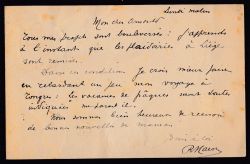 Lundi matin
Mon cher Armand
Tous mes projets sont bouleversés. J'apprends
à l'instant que les plaidoiries à Liège
sont remises.
Dans ces conditions je crois mieux faire
en retardant un peu mon voyage à
Tongres: les vacances de Pâques sont toutes
indiquées
Nous sommes bien heureux de recevoir
de bonnes nouvelles de maman
Bien à toi